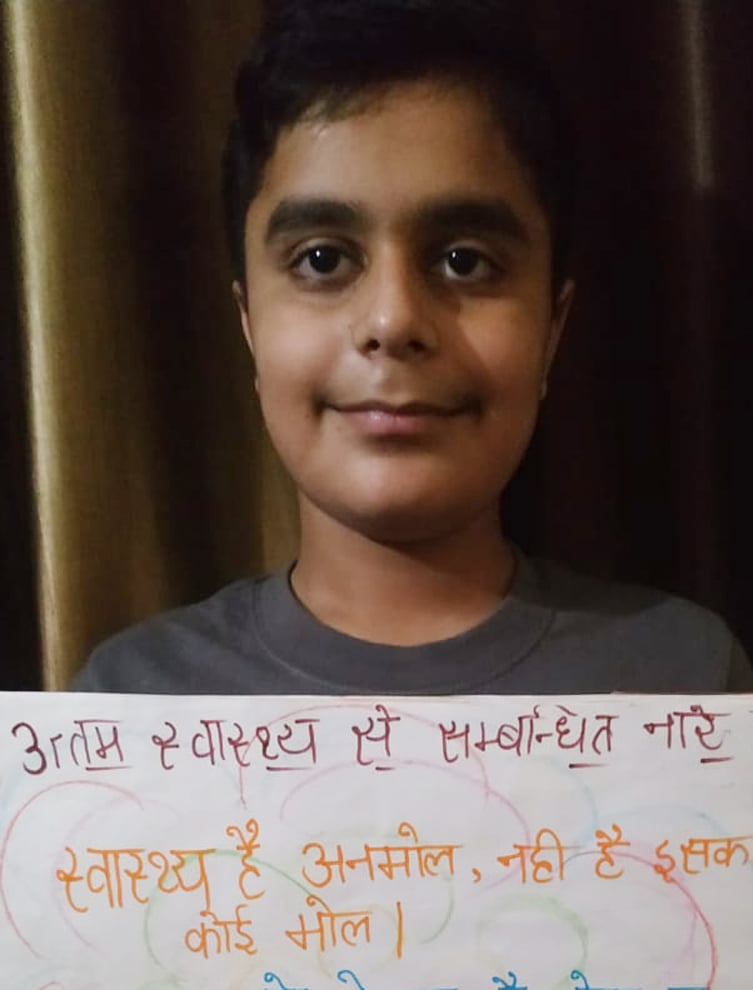 उत्तम स्वास्थ्य से सम्बन्धित नारे
स्वास्थ्य है अनमोल, नही है इसक
कोई मोल।